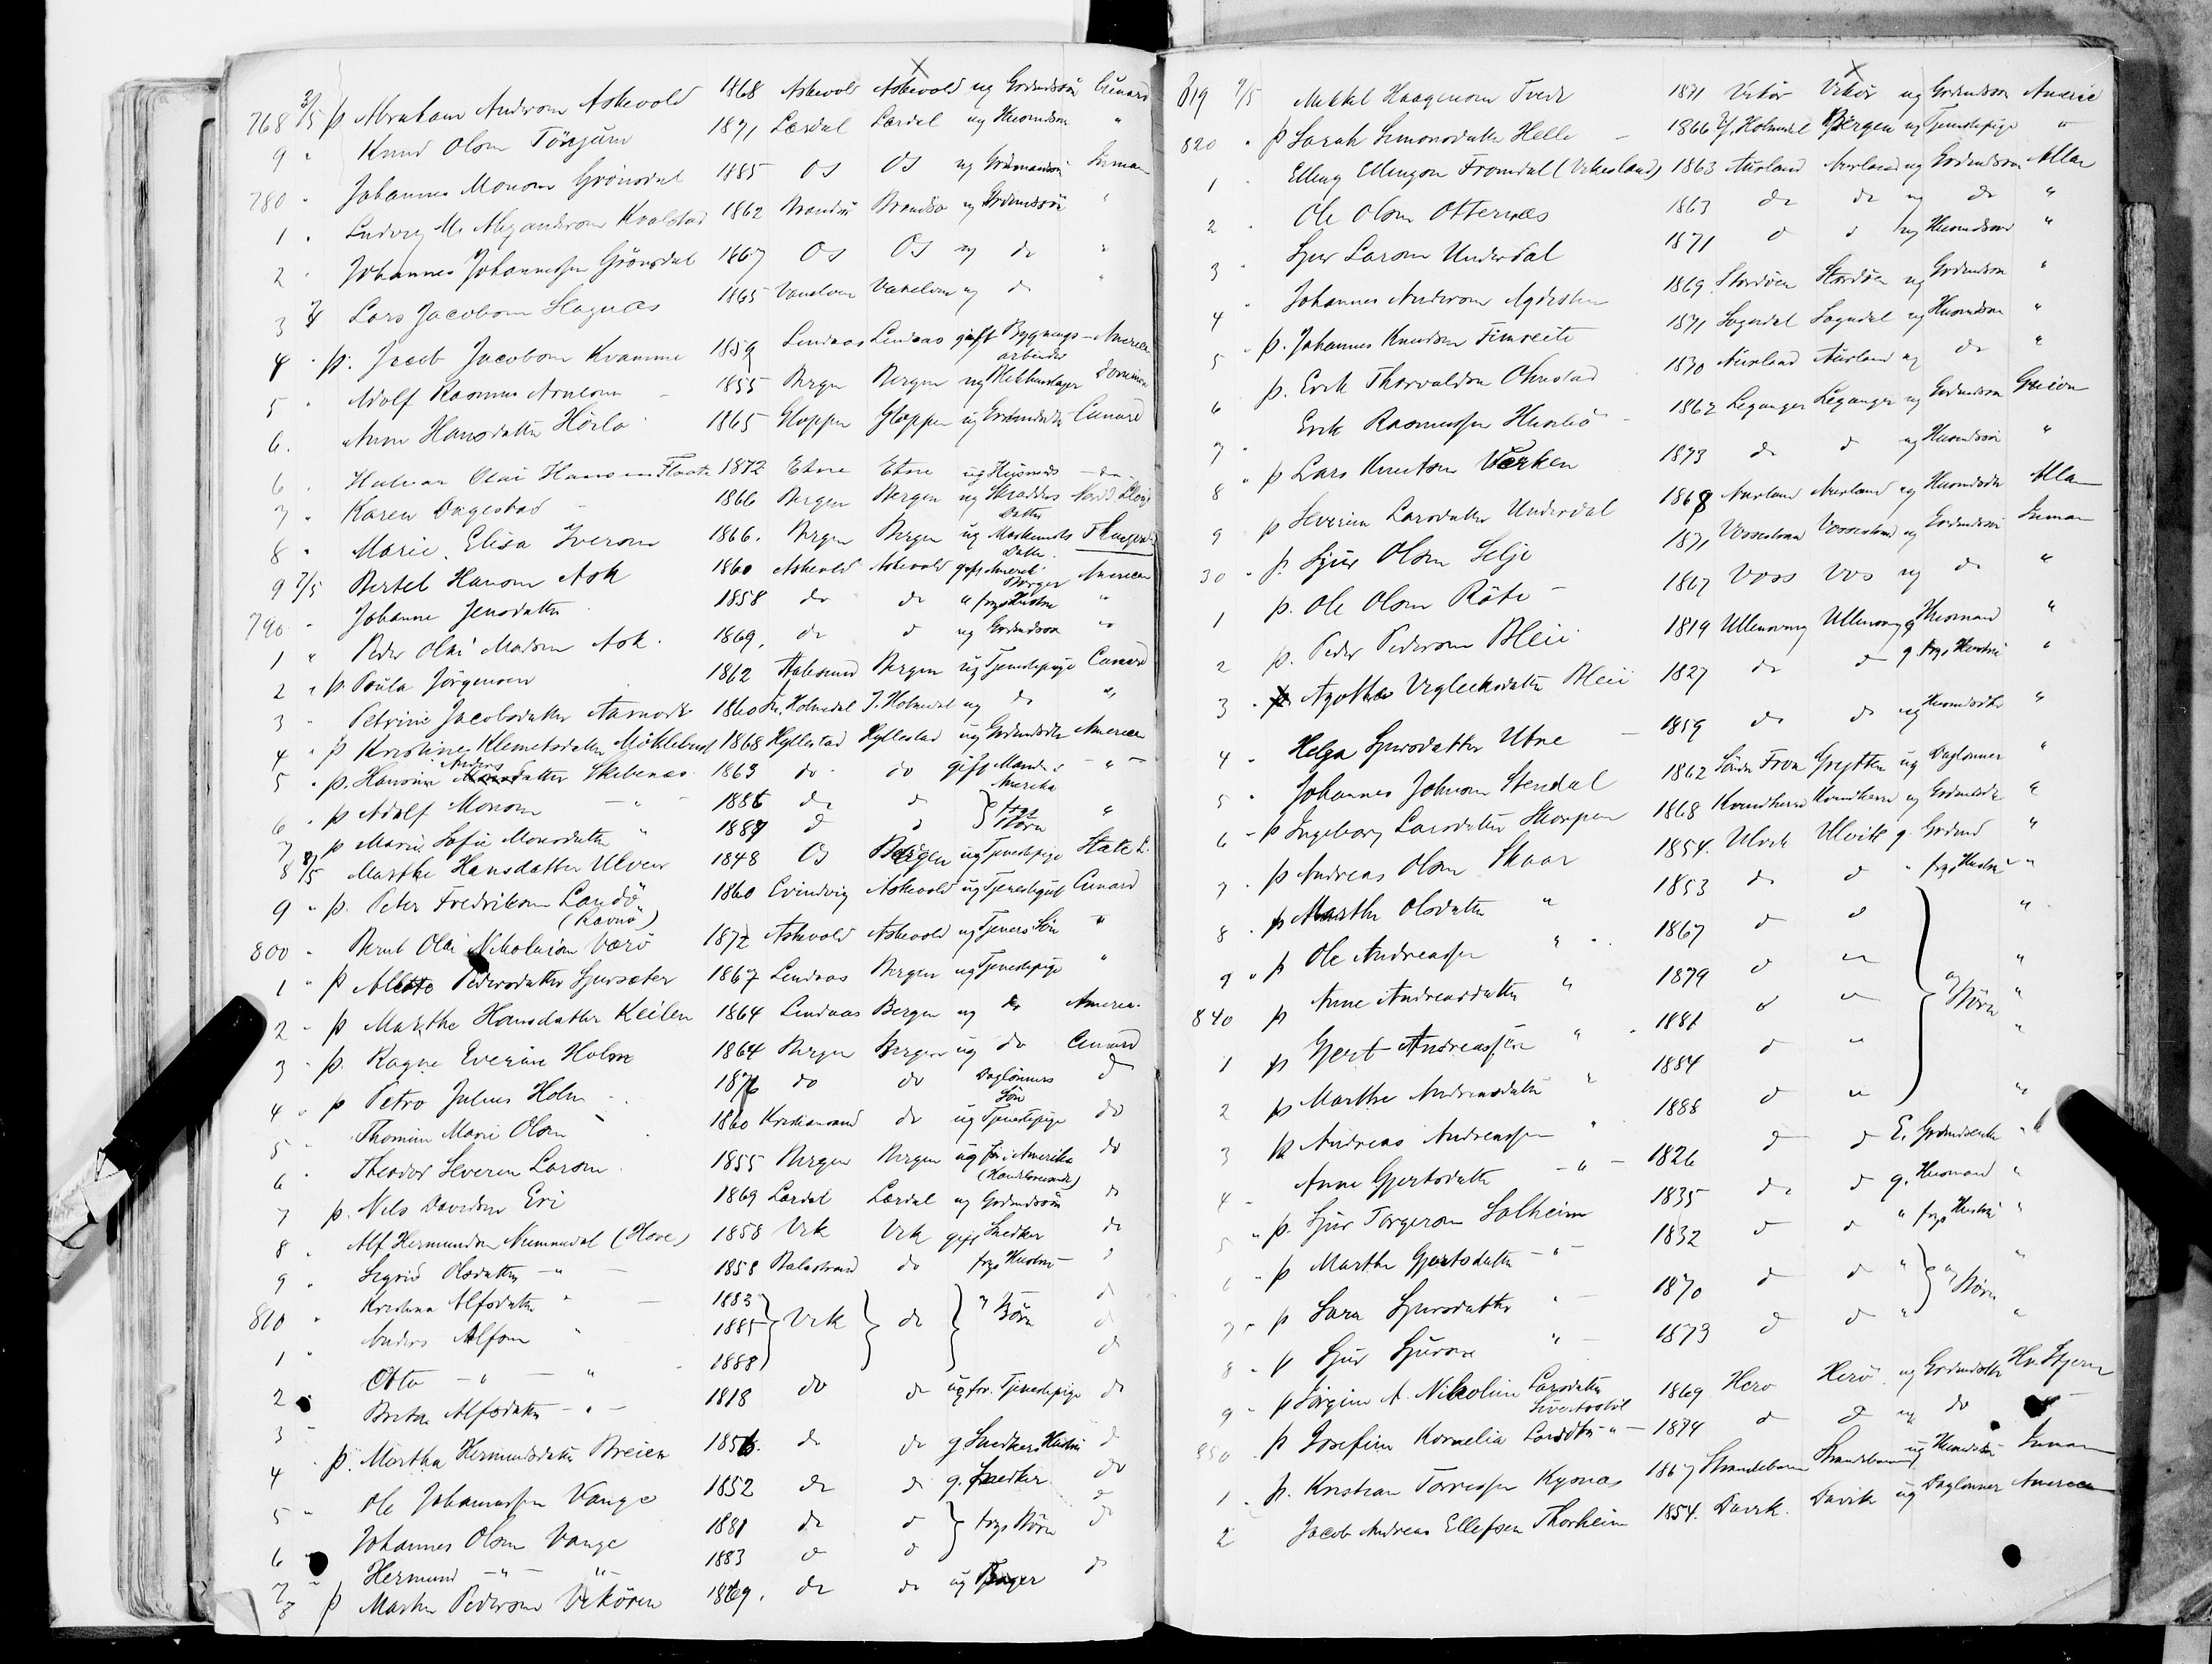 X
768 3/5 þ Abraham Andersen Askevold 1868 Askevold Askevold ug Gaardmdsøn Cunard
9 " Knud Olsen Tönjum 1871 Lærdal Lærdal ug Husmdsøn "
780 " Johannes Monsen Grönsdal 1885 Os Os ug Gaardmandsøn Inman
1 " Ludvig M. Alexandersen Kvalstad 1862 Brandsö Brandsö ug Gaardmdssön "
2 " Johannes Johannessen Grönsdal 1867 Os Os ug do "
3 4/5 Lars Jacobsen Hagnæs 1865 Vanelven Vanelven ug d "
4 " þ. Jacob Jacobsen Kvamme 1859 Lindaas Lindaas gift Bygnings- American
arbeider
5 " Adolf Rasmus Arnesen 1855 Bergen Bergen ug Blikkenslager Dominion
6. Anne Hansdatter Hörlo 1865 Gloppen Gloppen ug Gaardmdsdtr Cunard
6 " Halvar Olai Hansen Flaate 1872 Etne Etne ug Husmds - do -
7 " Karen Dagestad 1866 Bergen Bergen ug Skrædders Nordd Lloyd
Datter
8 " Marie Elisa Iversen 1866. Bergen Bergen ug Maskinists Thingvalla
Datter
9 7/5 Bertel Hansen Ask 1860 Askevold Askevold gift Amerik. American
Borger
790 " Johanne Jensdatter 1858 do do " frgs Hustru "
1 " Peder Olai Madsen Ask. 1869. do d ug Gaardmdssøn "
2 " þ. Paula Jörgensen 1862 Aalesund Bergen ug Tjenestepige Cunard
3 " Petrine Jacobsdatter Aamodt 1860 I. Holmedal I. Holmedal ug do "
4 " þ Kristine Klemetsdatter Möklebust 1868 Hyllestad Hyllestad ug Gaardmdsdtr American
5 " þ. Hansine Anders datter Skibenes 1863 do do gift Mand i - " -
Amerika
6 " þ Adolf Monsen - " - 1886 do d } frgs "
7 þ Marie Sofie Monsdatter " 1887 d d Børn "
8 8/5 Marthe Hansdatter Ulven 1848 Os Bergen ug Tjenestepige State L.
9 " þ. Peter Fredriksen Landö 1860 Evindvig Askevold ug Tjenestegut Cunard
(Ravnö)
800 " Bernt Olai Nikolaisen Værö 1872 Askevold Askevold ug Tjeners Søn "
1 " þ Alette Pedersdatter Sjursæter 1867 Lindaas Bergen ug Tjenestepige "
2 " þ Marthe Hansdatter Keilen 1864 Lindaas Bergen ug do American
3 " þ. Ragne Everine Holm 1864 Bergen Bergen ug do Cunard
4 " þ Petro Julius Holm - 1876 do do Daglønners d
Søn
5 " Thomine Marie Olsen 1860 Kristiansand do ug Tjenestepige do
6 " Theodor Severin Larsen 1855 Bergen Bergen ug før i Amerika do
7 þ. Nels Davidsen Eri 1869 Lærdal Lærdal ug Gaardmdssön d
8 " Alf Hermundsen Numedal (Hove) 1858 Vik Vik gift Snedker do
9 " Sigrid Olsdatter - " - 1858 Balestrand do frgs Hustru - d
810 " Kristina Alfsdatter " - 1883 } Vik } do } " Børn d
1 " Anders Alfsen " 1885 d
2 Otto - " - " 1888 d
3 - Brita Alfsdatter - " - 1818 do do ug fr. Tjenestepige do
4 þ. Martha Hermundsdatter Breien 1856. do do g Snedkers Hustru d
5 " Ole Johannessen Vange 1852 do do g. Snedker do
6 Johannes Olsen Vange 1881 do d } frgs Børn do
7 " Hermund - " - " - 1883 d d do
8 þ Martin Pedersen Vikören 1869. do do ug Bager do
X
819 9/5 Mikkel Haagensen Tveit 1871 Vikör Vikör ug Gaardmdssøn America
820 " þ Sarah Simonsdatter Helle - 1866 Y. Holmedal Bergen ug Tjenestepige "
1 " Elling Ellingsen Fromdal (Vikesland) 1863 Aurland Aurland ug Gaardmdssøn Allan
2 " Ole Olsen Otternæs 1863 do do ug do "
3 " Sjur Larsen Underdal 1871 d d ug Husmdssøn "
4 " Johannes Andersen Agdesten 1869 Stordöen Stordöen ug Gaardmdssøn "
5 " þ. Johannes Knudsen Fimreite 1871 Sogndal Sogndal ug Husmdssøn "
6 þ. Erik Thorvaldsen Ohnstad 1870 Aurland Aurland ug do "
7 " Erik Rasmussen Husebö - 1862 Leganger Leganger ug Gaardmdssøn Guion
8 " þ Lars Knutsen Værken 1873 do d ug Husmdssøn "
9 þ Severine Larsdatter Underdal 1868 Aurland Aurland ug Husmdsdtr Allan
30 " þ. Sjur Olsen Selje 1871 Vossestrand Vossestrand ug Gaardmdssøn Inman
1 þ. Ole Olsen Röte - 1867 Voss Vos ug do "
2 þ. Peder Pedersen Bleie 1819 Ullensvang Ullensvang g Husmand "
3 " þ Agathe Veglecksdatter Bleie 1827 do d g. frgs Hustru "
4 " Helga Sjursdatter Utne - 1859 do do ug Husmdsdtr "
5 " Johannes Johnsen Stendal 1862 Søndre Fron Grytten ug Daglønner "
6 " þ Ingeborg Larsdatter Skorpen 1868 Kvindherred Kvindherred ug Gaardmdsdtr "
7 " þ Andreas Olsen Skaar 1854. Ulvik Ulvik g. Gaardmd "
8 " þ Marthe Olsdatter " 1853 do d " frgs Hustru "
9 " þ Ole Andreassen " " 1867 d d } "
840 þ Anne Andreasdatter " 1879 d " "
1 þ Gjert Andreassen " " 1881 d " " Børn "
2 þ Marthe Andreasdatter " 1884 d " "
3 þ Andreas Andreassen " 1888 d " "
4 " Anne Gjertsdatter - " - 1826 d d E. Gaardmdsenke "
5 " þ. Sjur Torgersen Solheim 1835 do d g. Husmand "
6 " þ Marthe Gjertsdatter - " - 1832 d d " frgs Hustru "
7 " þ Sara Sjursdatter " - 1870 d d " } " Børn "
8 " þ Sjur Sjursen " - 1873 d d " "
9 " þ Jörgine A. Nikoline Larsdatter 1869 Herö Herö ug Gaardmdsdtr Hv. Stjerne
850 þ Josefine Kornelia Larsdtr " - 1874 d d ug do
1 " þ. Kristian Torressen Kynæs 1867 Strandebarm Strandebarm ug Husmdssøn Inman
2 Jacob Andreas Ellefsen Thorheim 1854. Davik. Davik ug Daglønner American